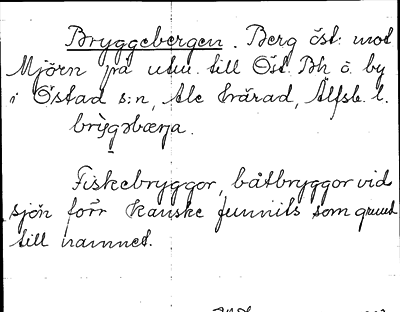 Bryggebergen. Berg öst. mot
Mjörn på utm. till Öst. Bh ö. by
i Östad s:n, Ale härad, Älfsb. l.
bry̆gəbærja.
Fiskebryggor, båtbryggor vid
sjön förr kanske funnits som grund
till namnet.